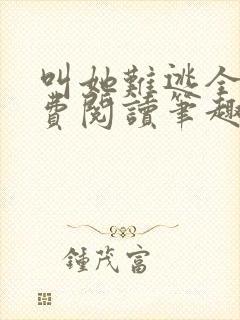 叫她難逃全
費閱讀筆趣
鍾茂富